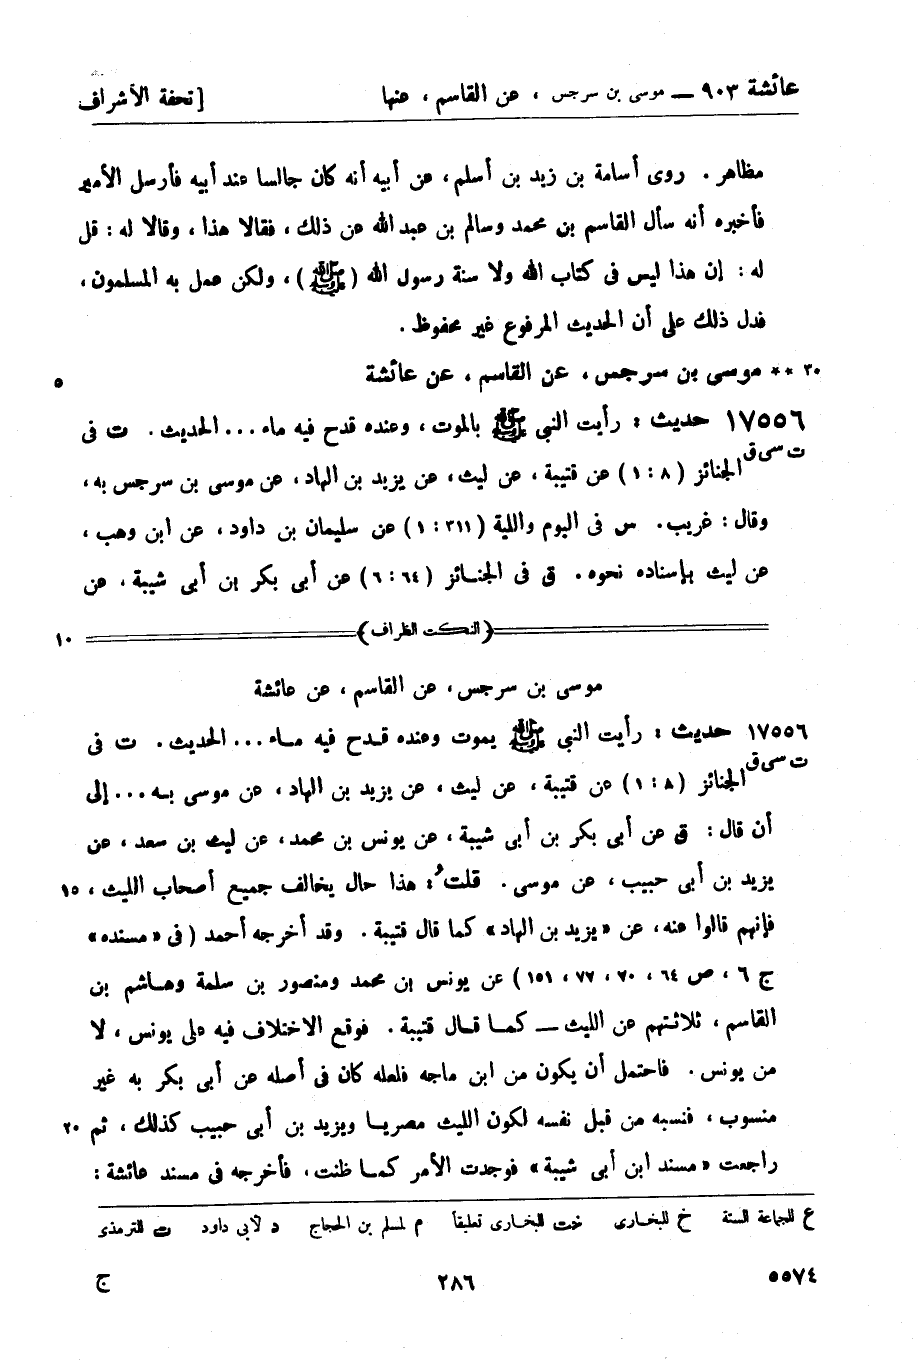 عائشة ٩٠٣ ــ موسى بن سرجس ، عن القاسم ، عنها [ تحفة الأشراف
مظاهر . روى أسامة بن زيد بن أسلم ، عن أبيه أنه كان جالسا عند أبيه فأرسل الأمير
فأخبره أنه سأل القاسم بن محمد وسالم بن عبد الله عن ذلك ، فقالا هذا ، وقالا له : قل
له : إن هذا ليس فى كتاب الله ولا سنة رسول الله ( ﷺ ) ، ولكن عمل به المسلمون ،
فدل ذلك على أن الحديث المرفوع غير محفوظ .
٣٠ ** موسى بن سرجس ، عن القاسم ، عن عائشة ٥
١٧٥٥٦ حديث : رأيت النبي ﷺ بالموت ، وعنده قدح فيه ماء ... الحديث . ت فى
ت سى ق الجنائز ( ٨ : ١ ) عن قتيبة ، عن ليث ، عن يزيد بن الهاد ، عن موسى بن سرجس به ،
وقال : غريب . س فى اليوم والليلة ( ٣١١ : ١ ) عن سليمان بن داود ، عن ابن وهب ،
عن ليث بإسناده نحوه . ق فى الجنائز ( ٦٤ : ٦ ) عن أبى بكر بن أبى شيبة ، عن
( النكت الظراف ) ١٠
موسى بن سرجس ، عن القاسم ، عن عائشة
١٧٥٥٦ حديث : رأيت النبي ﷺ يموت وعنده قدح فيه ماء ... الحديث . ت فى
ت سى ق الجنائز ( ٨ : ١ ) عن قتيبة ، عن ليث ، عن يزيد بن الهاد ، عن موسى به ... إلى
أن قال : ق عن أبى بكر بن أبى شيبة ، عن يونس بن محمد ، عن ليث بن سعد ، عن
يزيد بن أبى حبيب ، عن موسى . قلتُ : هذا حال يخالف جميع أصحاب الليث ، ١٥
فإنهم قالوا عنه ، عن «يزيد بن الهاد» كما قال قتيبة . وقد أخرجه أحمد ( فى «مسنده»
ج ٦ ، ص ٦٤ ، ٧٠ ، ٧٧ ، ١٥١ ) عن يونس بن محمد ومنصور بن سلمة وهاشم بن
القاسم ، ثلاثتهم عن الليث ــ كما قال قتيبة . فوقع الاختلاف فيه على يونس ، لا
من يونس . فاحتمل أن يكون من ابن ماجه فلعله كان فى أصله عن أبى بكر به غير
منسوب ، فنسبه من قبل نفسه لكون الليث مصريا ويزيد بن أبى حبيب كذلك ، ثم ٢٠
راجعت «مسند ابن أبى شيبة» فوجدت الأمر كما ظنت ، فأخرجه فى مسند عائشة :
ع للجماعة الستة خ للبخارى خت للبخارى تعليقاً م لمسلم بن الحجاج د لأبى داود ت للترمذى
٥٥٧٤ ٢٨٦ ج